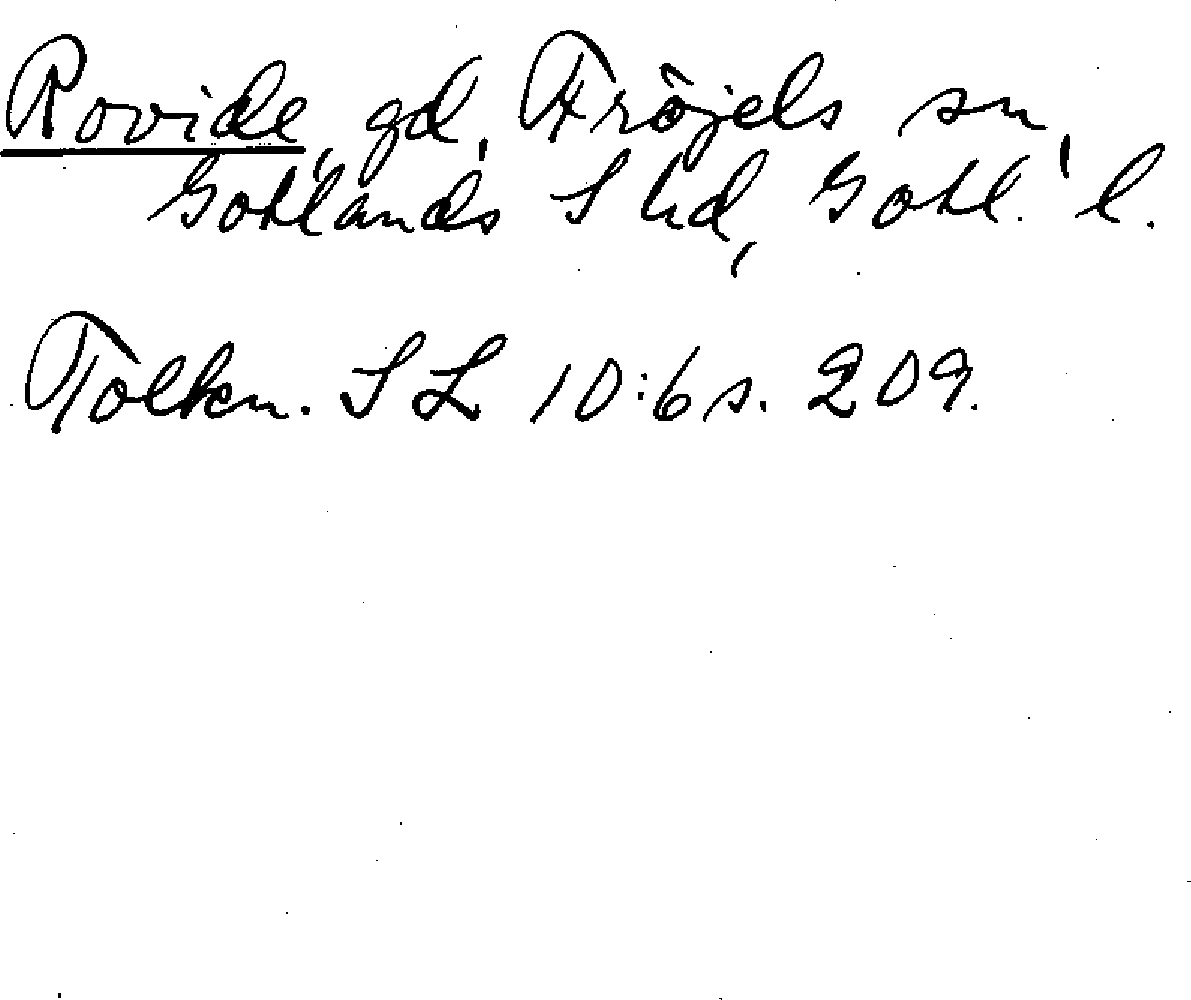 Rovide, gd, Fröjels sn,
Gotlands S hd, Gotl. l.
Tolkn. SL 10:6 s. 209.